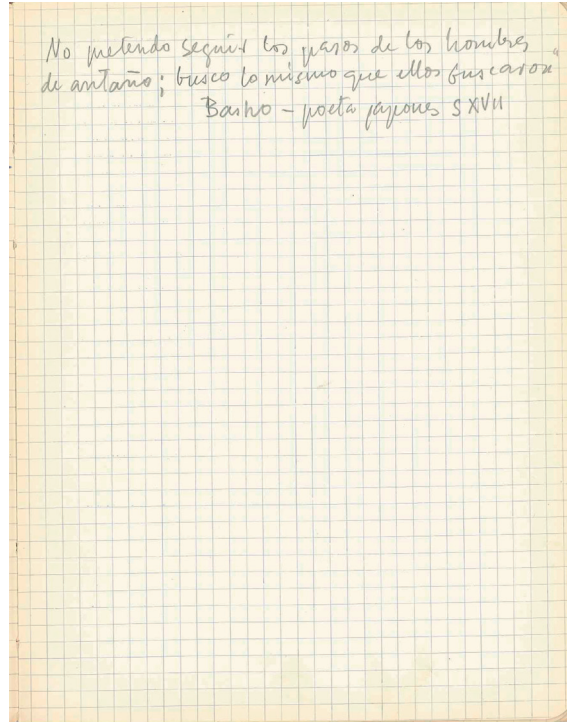 No pretendo seguir los pasos de los hombres
de antaño; busco lo mismo que ellos buscaron"
Basho - poeta japones S XVII